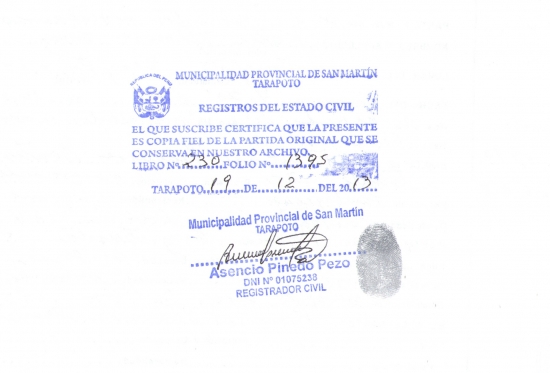 REPUBLICA DEL PERU
MUNICIPALIDAD PROVINCIAL DE SAN MARTÍN
TARAPOTO
REGISTROS DEL ESTADO CIVIL
EL QUE SUSCRIBE CERTIFICA QUE LA PRESENTE
ES COPIA FIEL DE LA PARTIDA ORIGINAL QUE SE
CONSERVA EN NUESTRO ARCHIVO.
LIBRO Nº 230 FOLIO Nº 1395
TARAPOTO, 19 DE 12 DEL 2013
Municipalidad Provincial de San Martín
TARAPOTO
Asencio Pinedo Pezo
DNI Nº 01075238
REGISTRADOR CIVIL